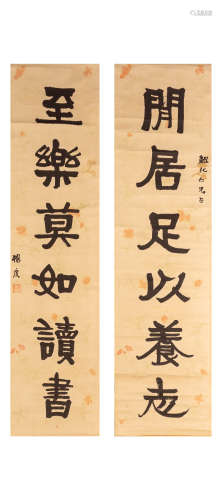 閒居足以養志
至樂莫如讀書